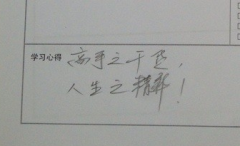 学习心得 高手之干，
人生之精彩！